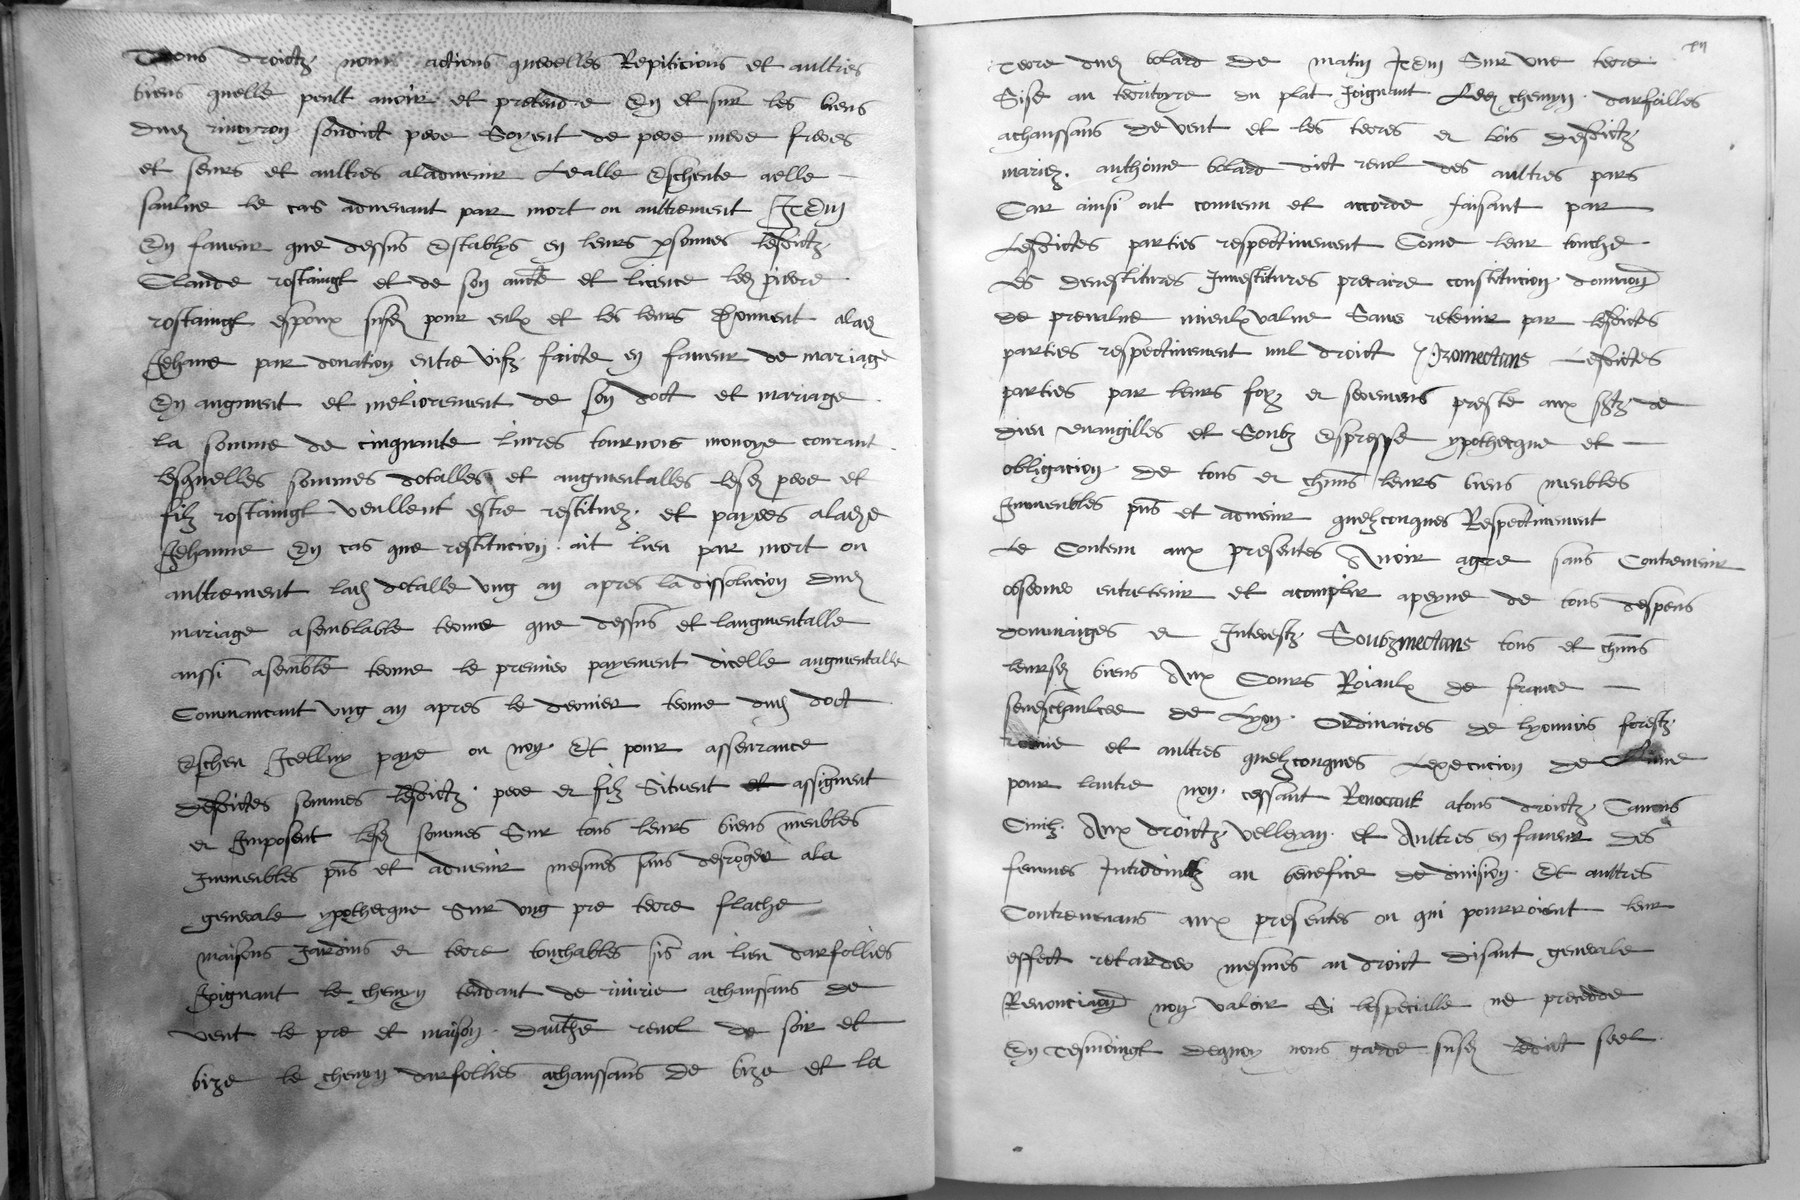 Tous droictz noms actions querelles Repiticions et aultres
biens quelle peult avoir et pretendre En et sur les biens
dud rinoyron soudict pere Soyent de pere mere freres
et seurs et aultres aladvenir Lealle Escheute aelle
saulne le cas advenant par mort ou aultrement Item
En faveur que dessus Establys en leurs psonnes lesdictz
Claude rostaingt et de son aucte et licence led pierre
rostaingt espoux susd pour eulx et les leurs donnent alad
Jehanne par donation entre vifz faicte en faveur de mariage
En augment et meliorement de son doct et mariage
la somme de cinquante livres tournois monoye courant
lesquelles sommes dotalles et augmentalles lesd pere et
filz rostaingt veullent estre restituez et payees aladte
Jehanne En cas que restitucion ait lieu par mort ou
aultrement lad dotalle ung an apres la dissolucion dud
mariage asemblable terme que dessus et laugmentalle
aussi asemble terme le premier payement dicelle augmentalle
Commancant ung an apres le dernier terme dud doct
Escheu Icelluy paye ou non Et pour asseurance
desdictes sommes lesdictz pere et filz Situent et assignent
et Imposent lesd sommes Sur tous leurs biens meubles
Immeubles pns et advenir mesmes sans desroger ala
generale ypothecque Sur ung pre terre flache
maisons Jardins et terre touchables sis au lieu darfollies
Joignant le chemyn tendant de rivirie achaussans de
vent le pre et maison danthe revol de soir et
bize le chemyn darfollies achaussans de bize et la
terre dud blard de matin Item Sur une terre
Sise au territoyre du plat Joignant Led chemyn darfollies
achaussans de vent et les terres et bois desdictz
mariez anthoine blard dict revol des aultres pars
Car ainsi ont convenu et accorde faisant par
Lesdictes parties respectivement Come leur touche
Les devestitures Investitures precaire constitucion donnaon
de prevalue mieulx value Sans retenir par lesdictes
parties respectivement nul droict Promectans Lesdictes
parties par leurs foyz et seremens preste aux sctz de
dieu evangilles et Soubz Expresse ypothecque et
obligacion de tous et chuns leurs biens meubles
Immeubles pns et advenir quelzconques Respectivement
Le Contenu aux presentes Avoir agere sans Contrevenir
observer entretenir et acomplir apeyne de tous despens
dommaiges et Interestz Soubzmectans tous et chuns
leursd biens Aux Cours Roiaulx de france
seneschaulcee de Lyon Ordinaires de lyonnois forestz
romme et aultres quelzconques Lexecucion de Lune
pour lautre non cessant Renocant atous droictz Canons
Civilz Aux droictz velleyan et Aultres en faveur des
femmes Introduictz au benefice de division Et aultres
Contrevenans aux presentes ou qui pourroient leur
effect retarder mesmes au droict disant generale
Renonciaon non valoir Si lespecialle ne precedde
En Tesmoingt dequoy nous garde susd ledict seel